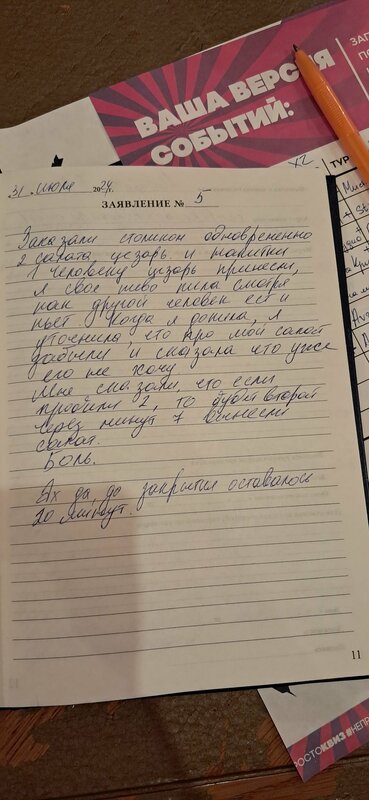 ВАША ВЕРСИЯ
СОБЫТИЙ:
31 июля 2024г.
ЗАЯВЛЕНИЕ № 5
Заказали столиком одновременно
2 салата, цезарь и напитки
1 человеку цезарь принесли,
я свое пиво пила смотря
как другой человек ест и
пьет. Когда я допила, я
уточнила, что про мой салат
забыли и сказала что уже
его не хочу
Мне сказали, что если
пробили 2, то будет второй
Через минут 7 вынесли
салат.
Боль.
Ах да, до закрытия оставалось
20 минут.
11
ТУР
РОСТОКВИЗ #НЕПР